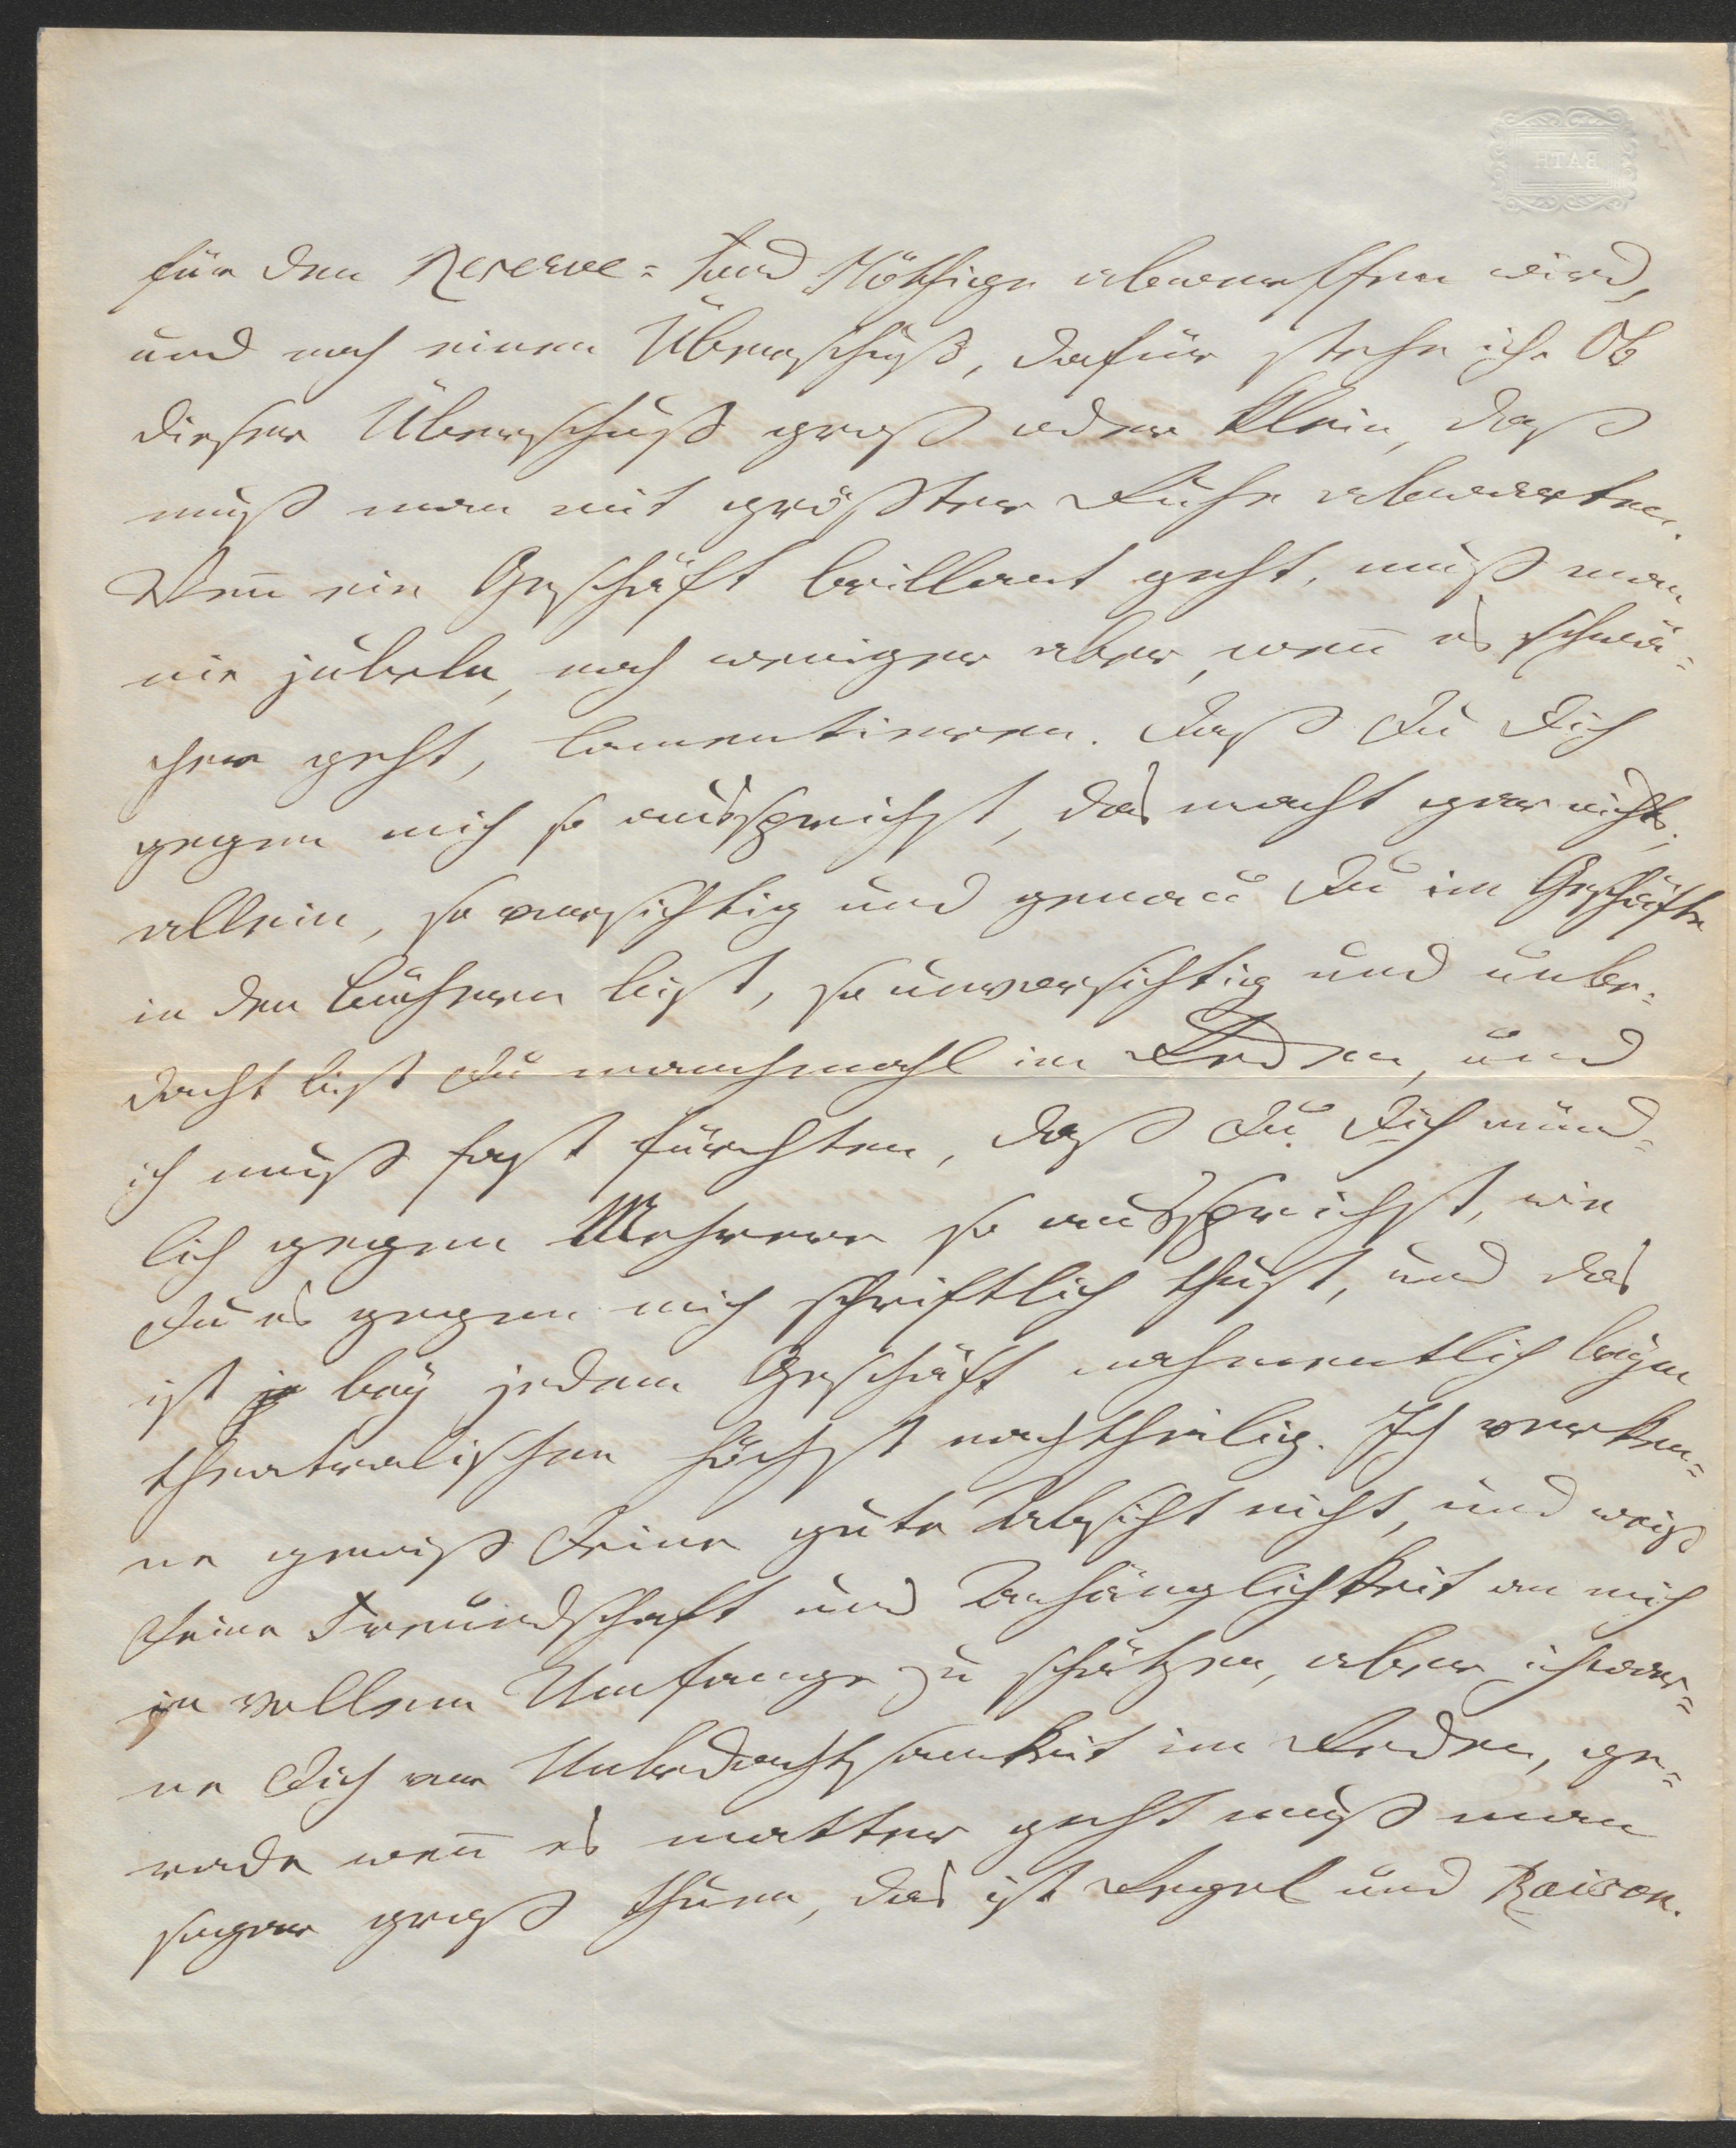 BATH
für den Reserve=Fond Nöthige abwerffen wird,
und noch einen Überschuß, dafür stehe ich. Ob
dieser Überschuß groß oder klein, daß
muß man mit größter Ruhe abwarten.
Wen̅ ein Geschäft brillant geht, muß man
nie jubeln, noch weniger aber, wen̅ es schwä=
cher geht, lamentieren. Daß Du Dich
gegen mich so aussprichst, das macht gar nichts;
allein, so vorsichtig und genau Du im Geschäfte
in den Büchern bist, so unvorsichtig und unbe=
dacht bist Du manchmahl im Reden, und
ich muß fast fürchten, daß Du Dich münd=
lich gegen Mehrere so aussprichst, wie
Du es gegen mich schriftlich thust, und das
ist bey jedem Geschäft nahmentlich beym
theatralischen höchst nachtheilig. Ich verken=
ne gewiß Deine gute Absicht nicht, und weiß
Deine Freundschaft und Anhänglichkeit an mich
in vollem Umfange zu schätzen, aber ich war=
ne Dich vor Unbedachtsamkeit im Reden, ge=
rade wen̅ es matter geht muß man
sogar groß thuen, das ist Regel und Raison.